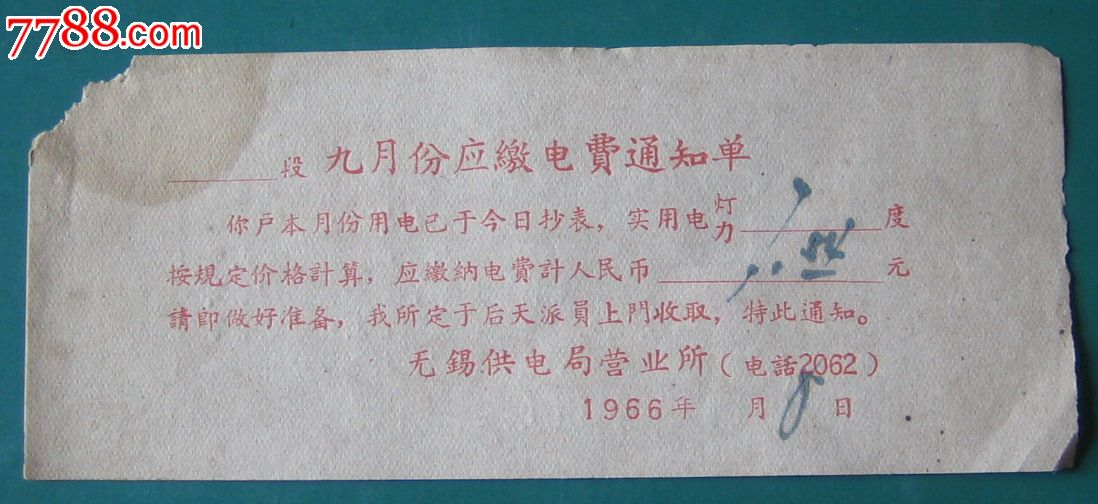 7788.com
段 九月份应繳电費通知单
你戶本月份用电已于今日抄表，实用电灯力 度
按規定价格計算，应繳納电費計人民币 .84 元
請即做好准备，我所定于后天派員上門收取，特此通知。
无錫供电局营业所（电話2062）
1966年 月8日